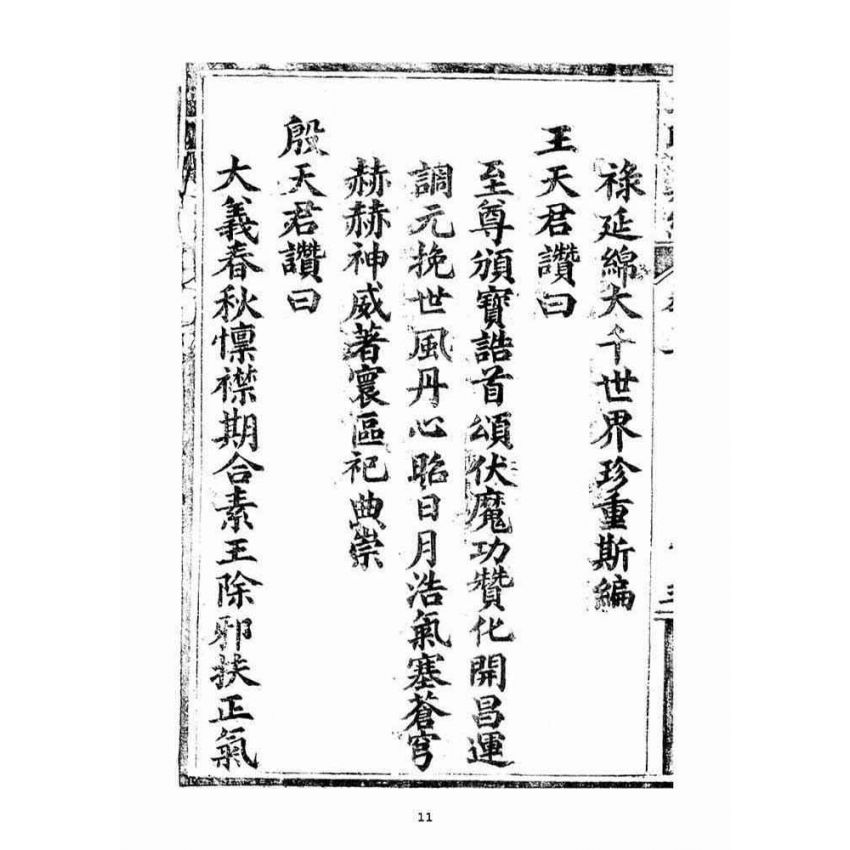 祿延綿大千世界珍重斯編
王天君讚曰
至尊頒寶誥首頌伏魔功贊化開昌運
調元挽世風丹心昭日月浩氣塞蒼穹
赫赫神威著寰區祀典崇
殷天君讚曰
大義春秋懍襟期合素王除邪扶正氣
11